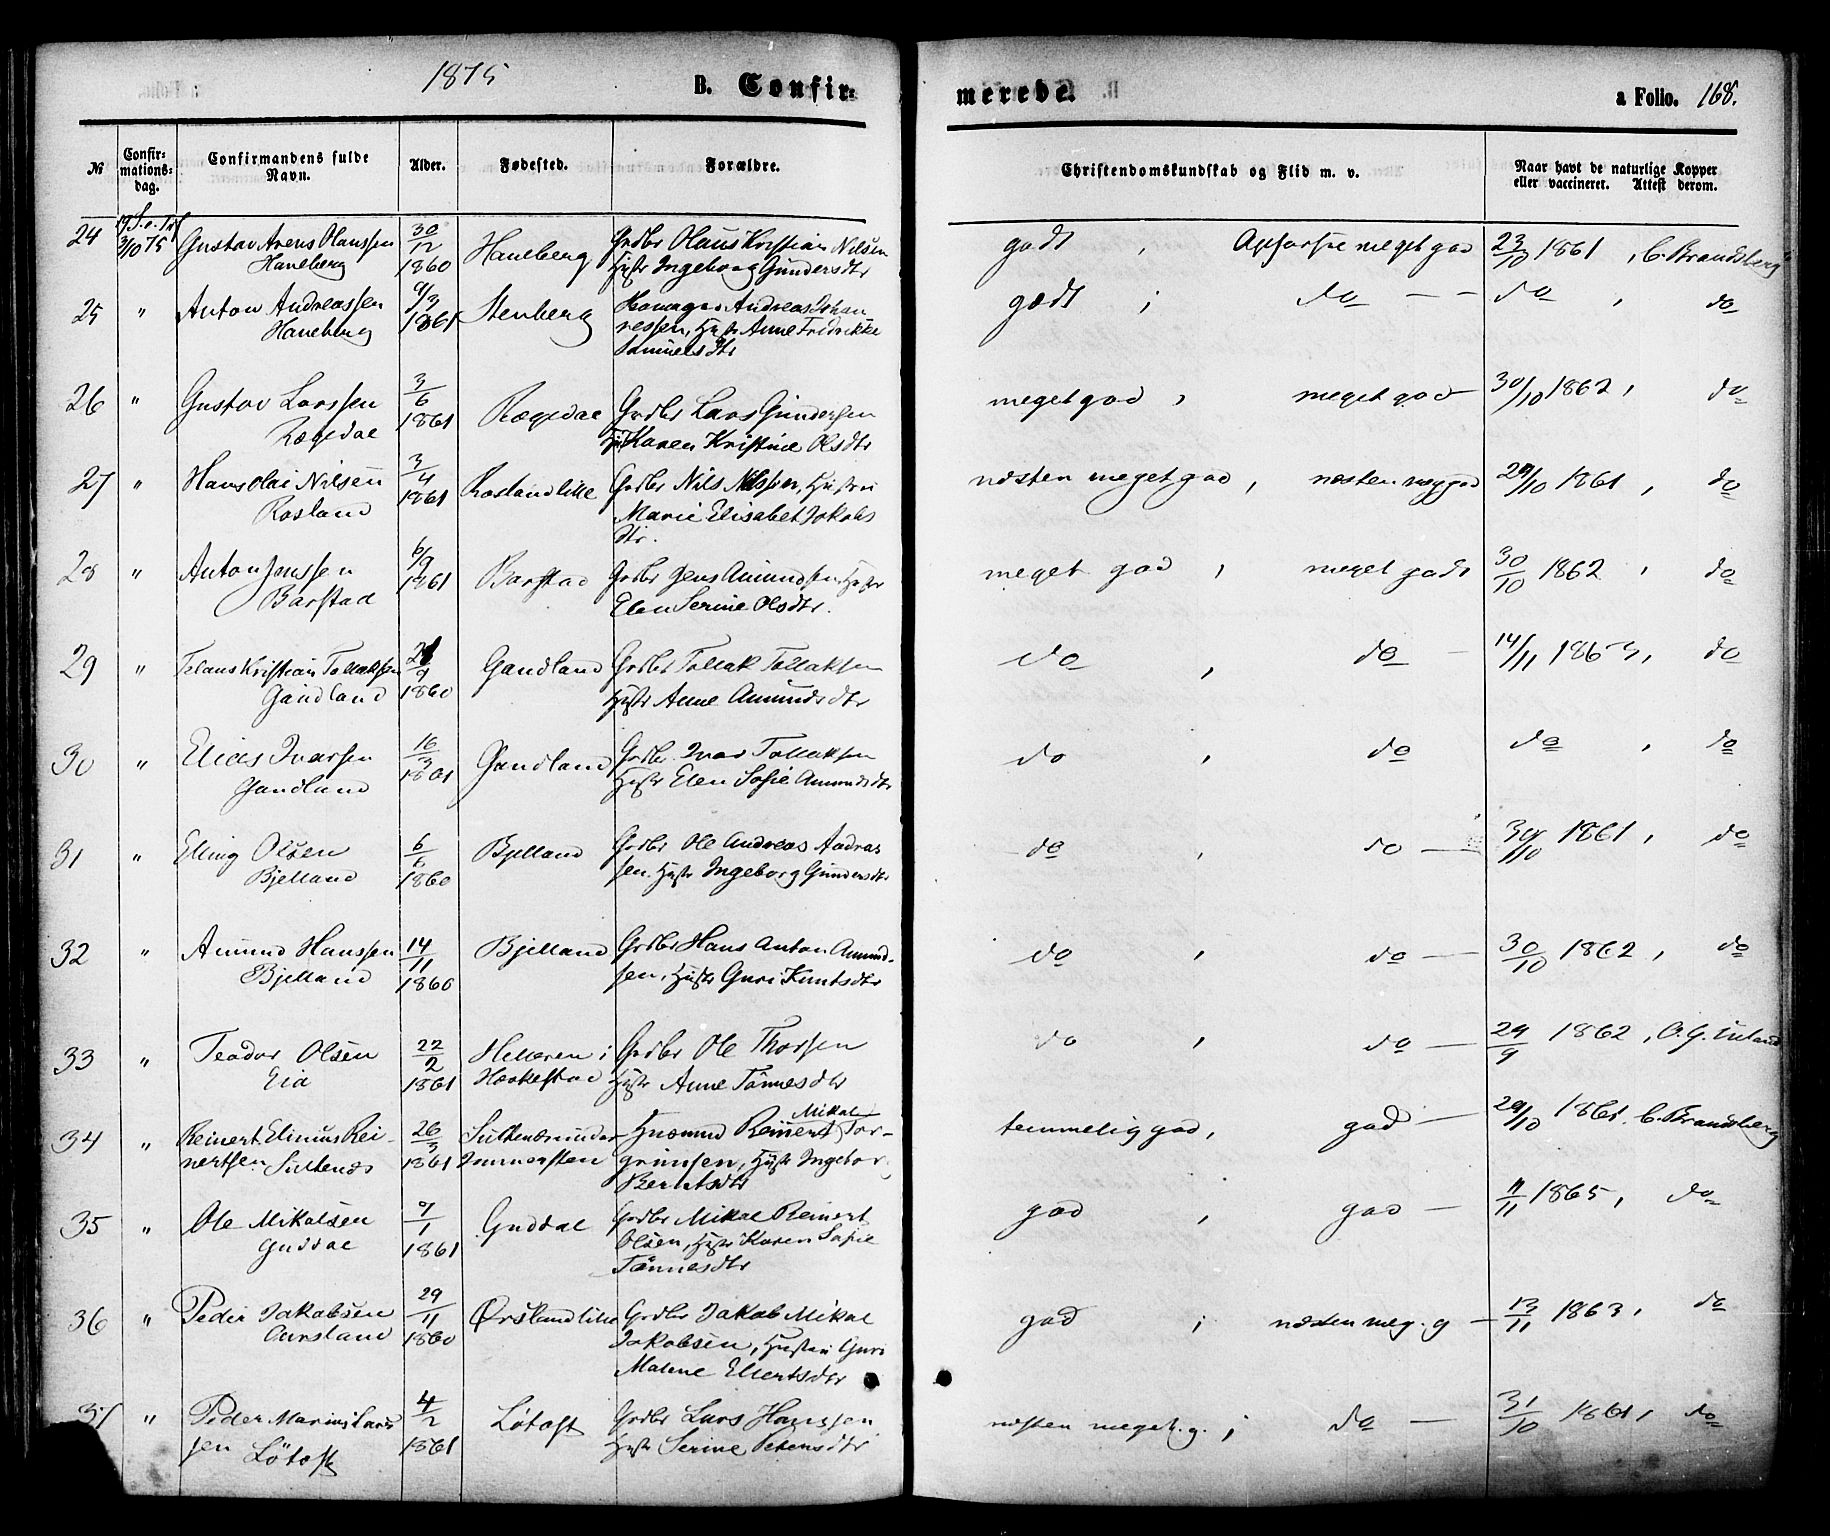 1875 B. Confir= merede. a Folio. 168.
№ Confir=mations=dag. Confirmandens fulde Navn. Alder. Fødested. Forældre. Christendomskundskab og Flid m. v. Naar havt de naturlige Kopper eller vaccineret. Attest derom.
24 19 S. e. Tr. 3/10 75 Gustav Arens Olaussen Haneberg 30/12 1860 Haneberg Grdbr Olaus Kristian Nilsen Hustr Ingeborg Gundersdtr godt , Opførsel meget god 23/10 1861 , C. Brandsberg
25 " Anton Andreassen Haneberg 9/3 1861 Stenberg Andreas Johannessen, Hustr Anne Fredrikke Samuelsdtr godt , do — — do , do
26 " Gustav Larssen Rægedal 3/6 1861 Rægedal Grdbr Lars Gundersen Hu Karen Kristine Olsdtr meget god , meget god 30/10 1862 , do
27 " Hans Olai Nilsen Rosland 3/4 1861 Roslandlille Grdbr Nils Nilssen, Hustru Marie Elisabet Jakobsdtr. næsten meget god , næsten meg god 29/10 1861 , do
28 " Anton Jenssen Barstad 6/9 1861 Barstad Grdbr Jens Amundsen Hustr Elen Serine Olsdtr. meget god , meget godt 30/10 1862 , do
29 " Kristian Tollaksen Gandland 1860 Gandland Grdbr Tollak Tollaksen Hustr Anne Amundsdtr do , do — 14/11 1863, do
30 " Elias Ivarsen Gandland 16/3 1861 Gandland Grdbr. Ivar Tollaksen Hustr Elen Sofie Amundsdtr do , do do , do
31 " Elling Olsen Bjelland 6/6 1860 Bjelland Grdbr Ole Andreas Andreassen. Hustr Ingeborg Gundersdtr do , do — 30/10 1861 , do
32 " Amund Hanssen Bjelland 14/11 1860 Bjelland Grdbr Hans Anton Amundsen, Hustr Guri Knutsdtr do , do — 30/10 1862 , do
33 " Teodor Olsen Eia 22/2 1861 Helleren i Heskestad Grdbr Ole Thorsen Hustr Anne Tønnesdtr do , do — 29/9 1862 , O. G. Ueland
34 " Reinert Elinius Reinertsen Sultenæs 26/3 1861 Husmand Reinert Mikal Torgrimsen, Hustr Ingebor Berntsdtr temmelig god, god — 29/10 1861. C. Brandsberg
35 " Ole Mikalsen Guddal 9/1 1861 Guddal Grdbr Mikal Reinert Olsen, Hustr Karen Sofie Tønnesdtr god , god — 11/11 1865 , do
36 " Peder Jakobsen Aursland 29/11 1860 Ørslandlille Grdbr Jakob Mikal Jakobsen, Hustru Guri Malene Ellertsdtr god , næsten meg. g — 13/11 1863, do
37 " Peder Marius Larssen Løtoft 4/2 1861 Løtoft Grdbr Lars Hanssen Hustr Serine Petersdtr næsten meget. g. , do — 31/10 1861, do